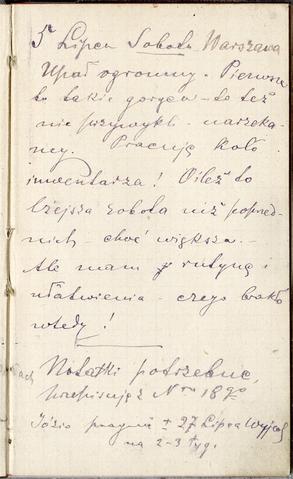 5 Lipca Sobota Warszawa
Upał ogromny. Pierwsze
to takie gorąco - to też
nie przywykli - narzeka-
my. Pracuję koło
inwentarza! O ileż to
lżejsza robota niż poprzed-
nich - choć większa. -
Ale mam rutynę i
ułatwienia - czego brakło
wtedy!
Notatki potrzebne,
przepisuję z N 18go
Józio pragnie ± 27 Lipca wyjech
na 2-3 tyg.